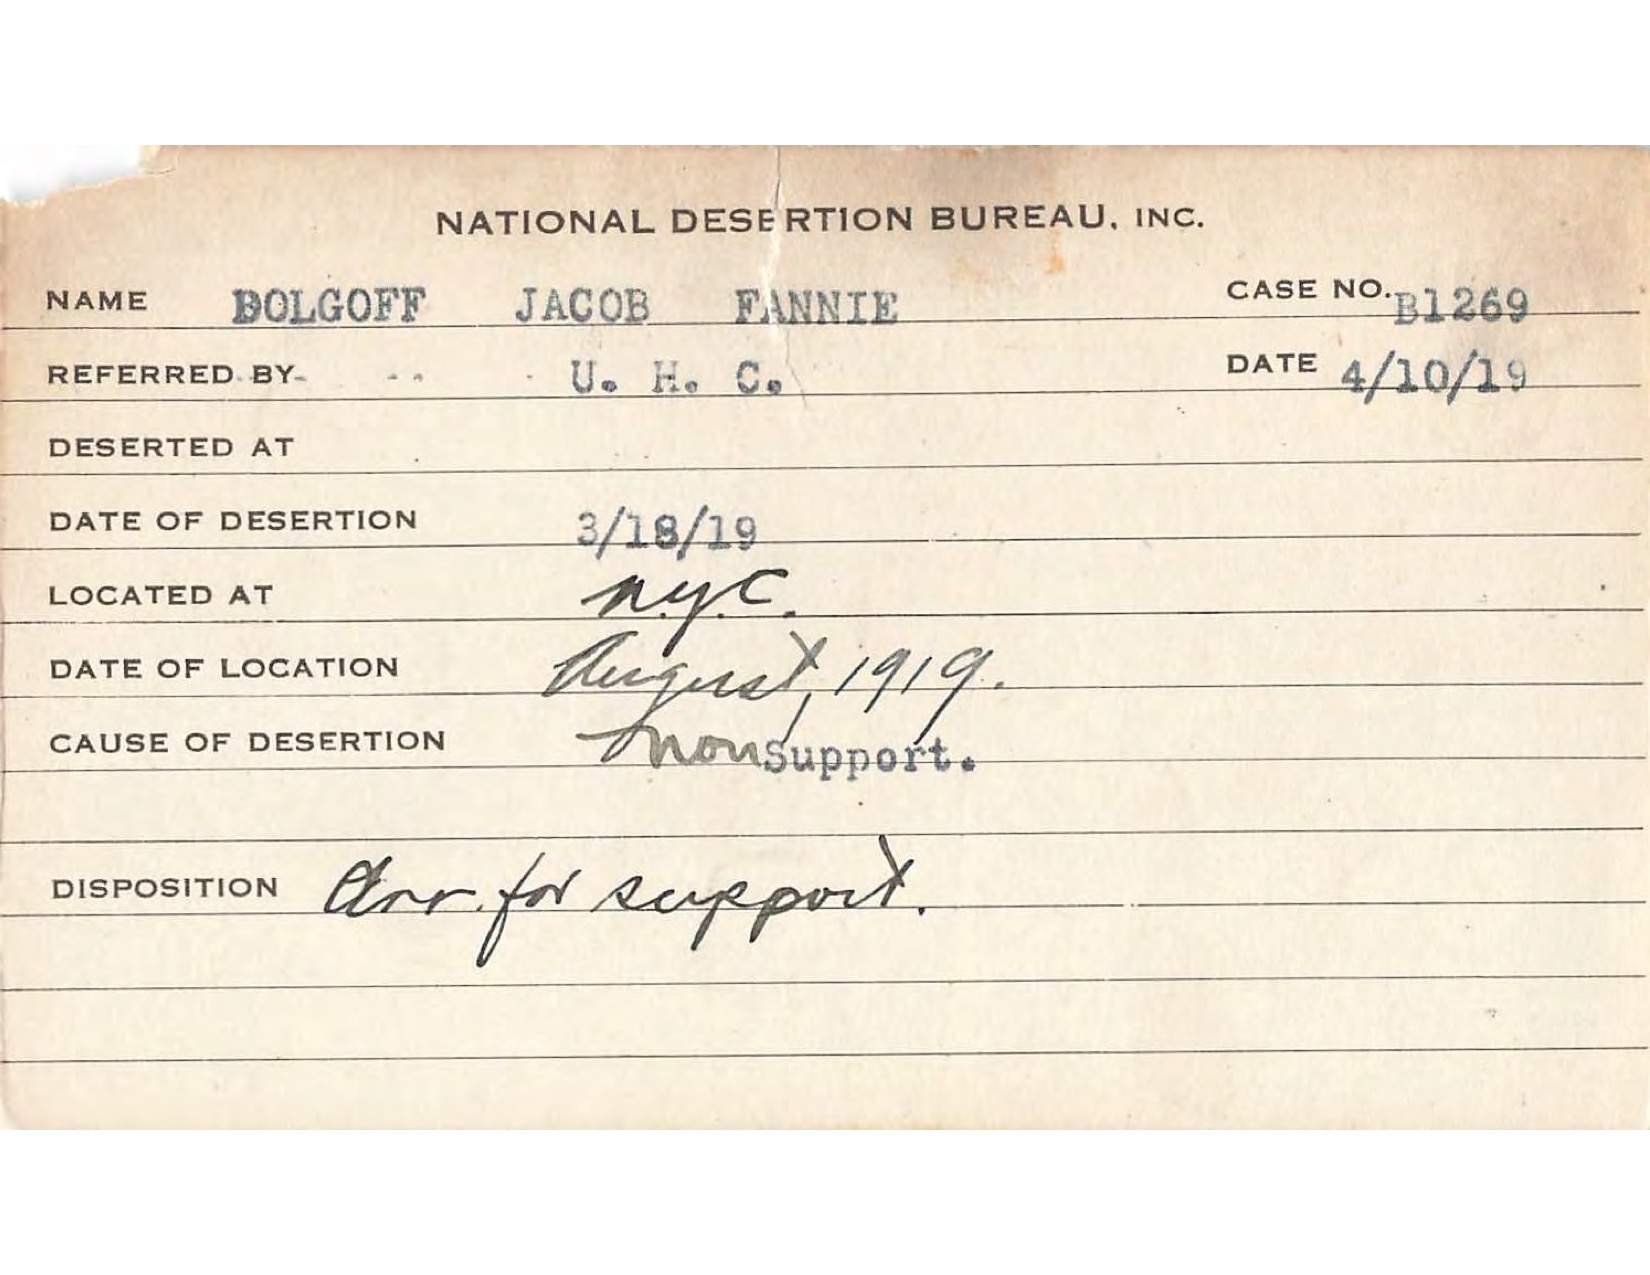 NATIONAL DESERTION BUREAU, INC.
NAME BOLGOFF JACOB FANNIE CASE NO. B1269
REFERRED BY U. H. C. DATE 4/10/19
DESERTED AT
DATE OF DESERTION 3/18/19
LOCATED AT N.Y.C.
DATE OF LOCATION August, 1919.
CAUSE OF DESERTION Nonsupport.
DISPOSITION Arr. for support.